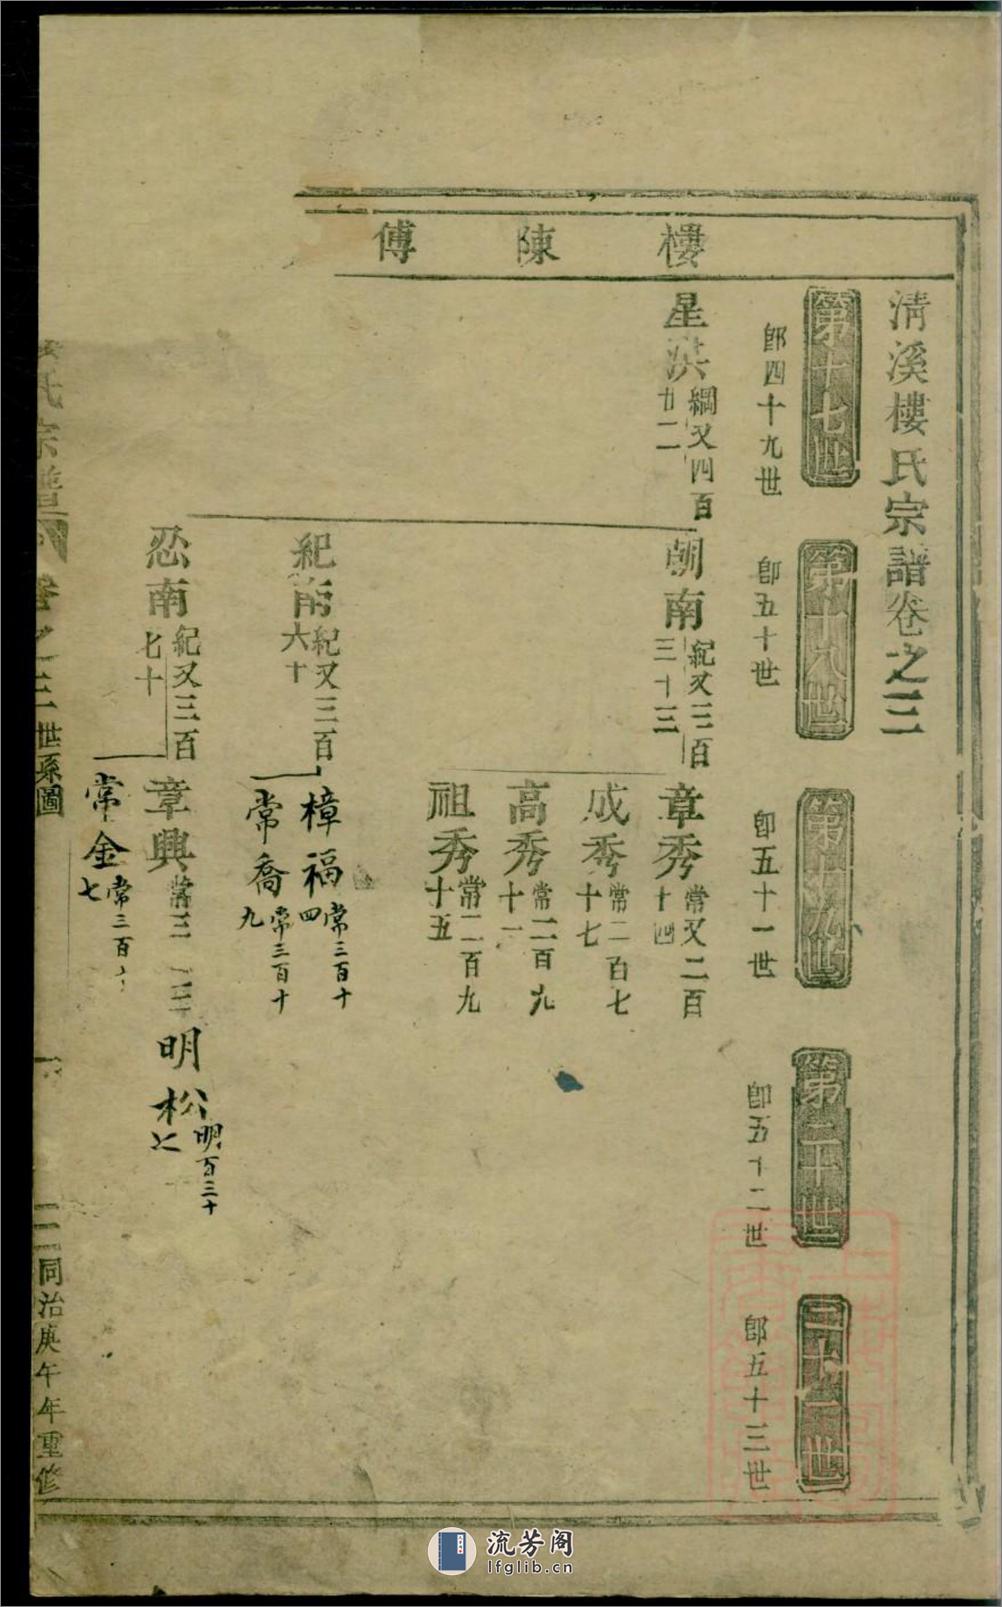 樓陳傅
清溪樓氏宗譜卷之三
第十七世
即四十九世
第十八世
即五十世
第十九世
即五十一世
第二十世
即五十二世
二十一世
即五十三世
星洪
綱又四百廿二
朝南
紀又三百三十三
紀南
紀又三百六十
忍南
紀又三百七十
章秀
常又二百十四
成秀
常二百七十七
高秀
常二百九十一
祖秀
常二百九十五
樟福
常三百十四
常喬
常三百十九
章興
常金
明松
明百三十七
氏宗譜
卷之三
世系圖
同治庚午年重修
流芳阁
lfglib.cn